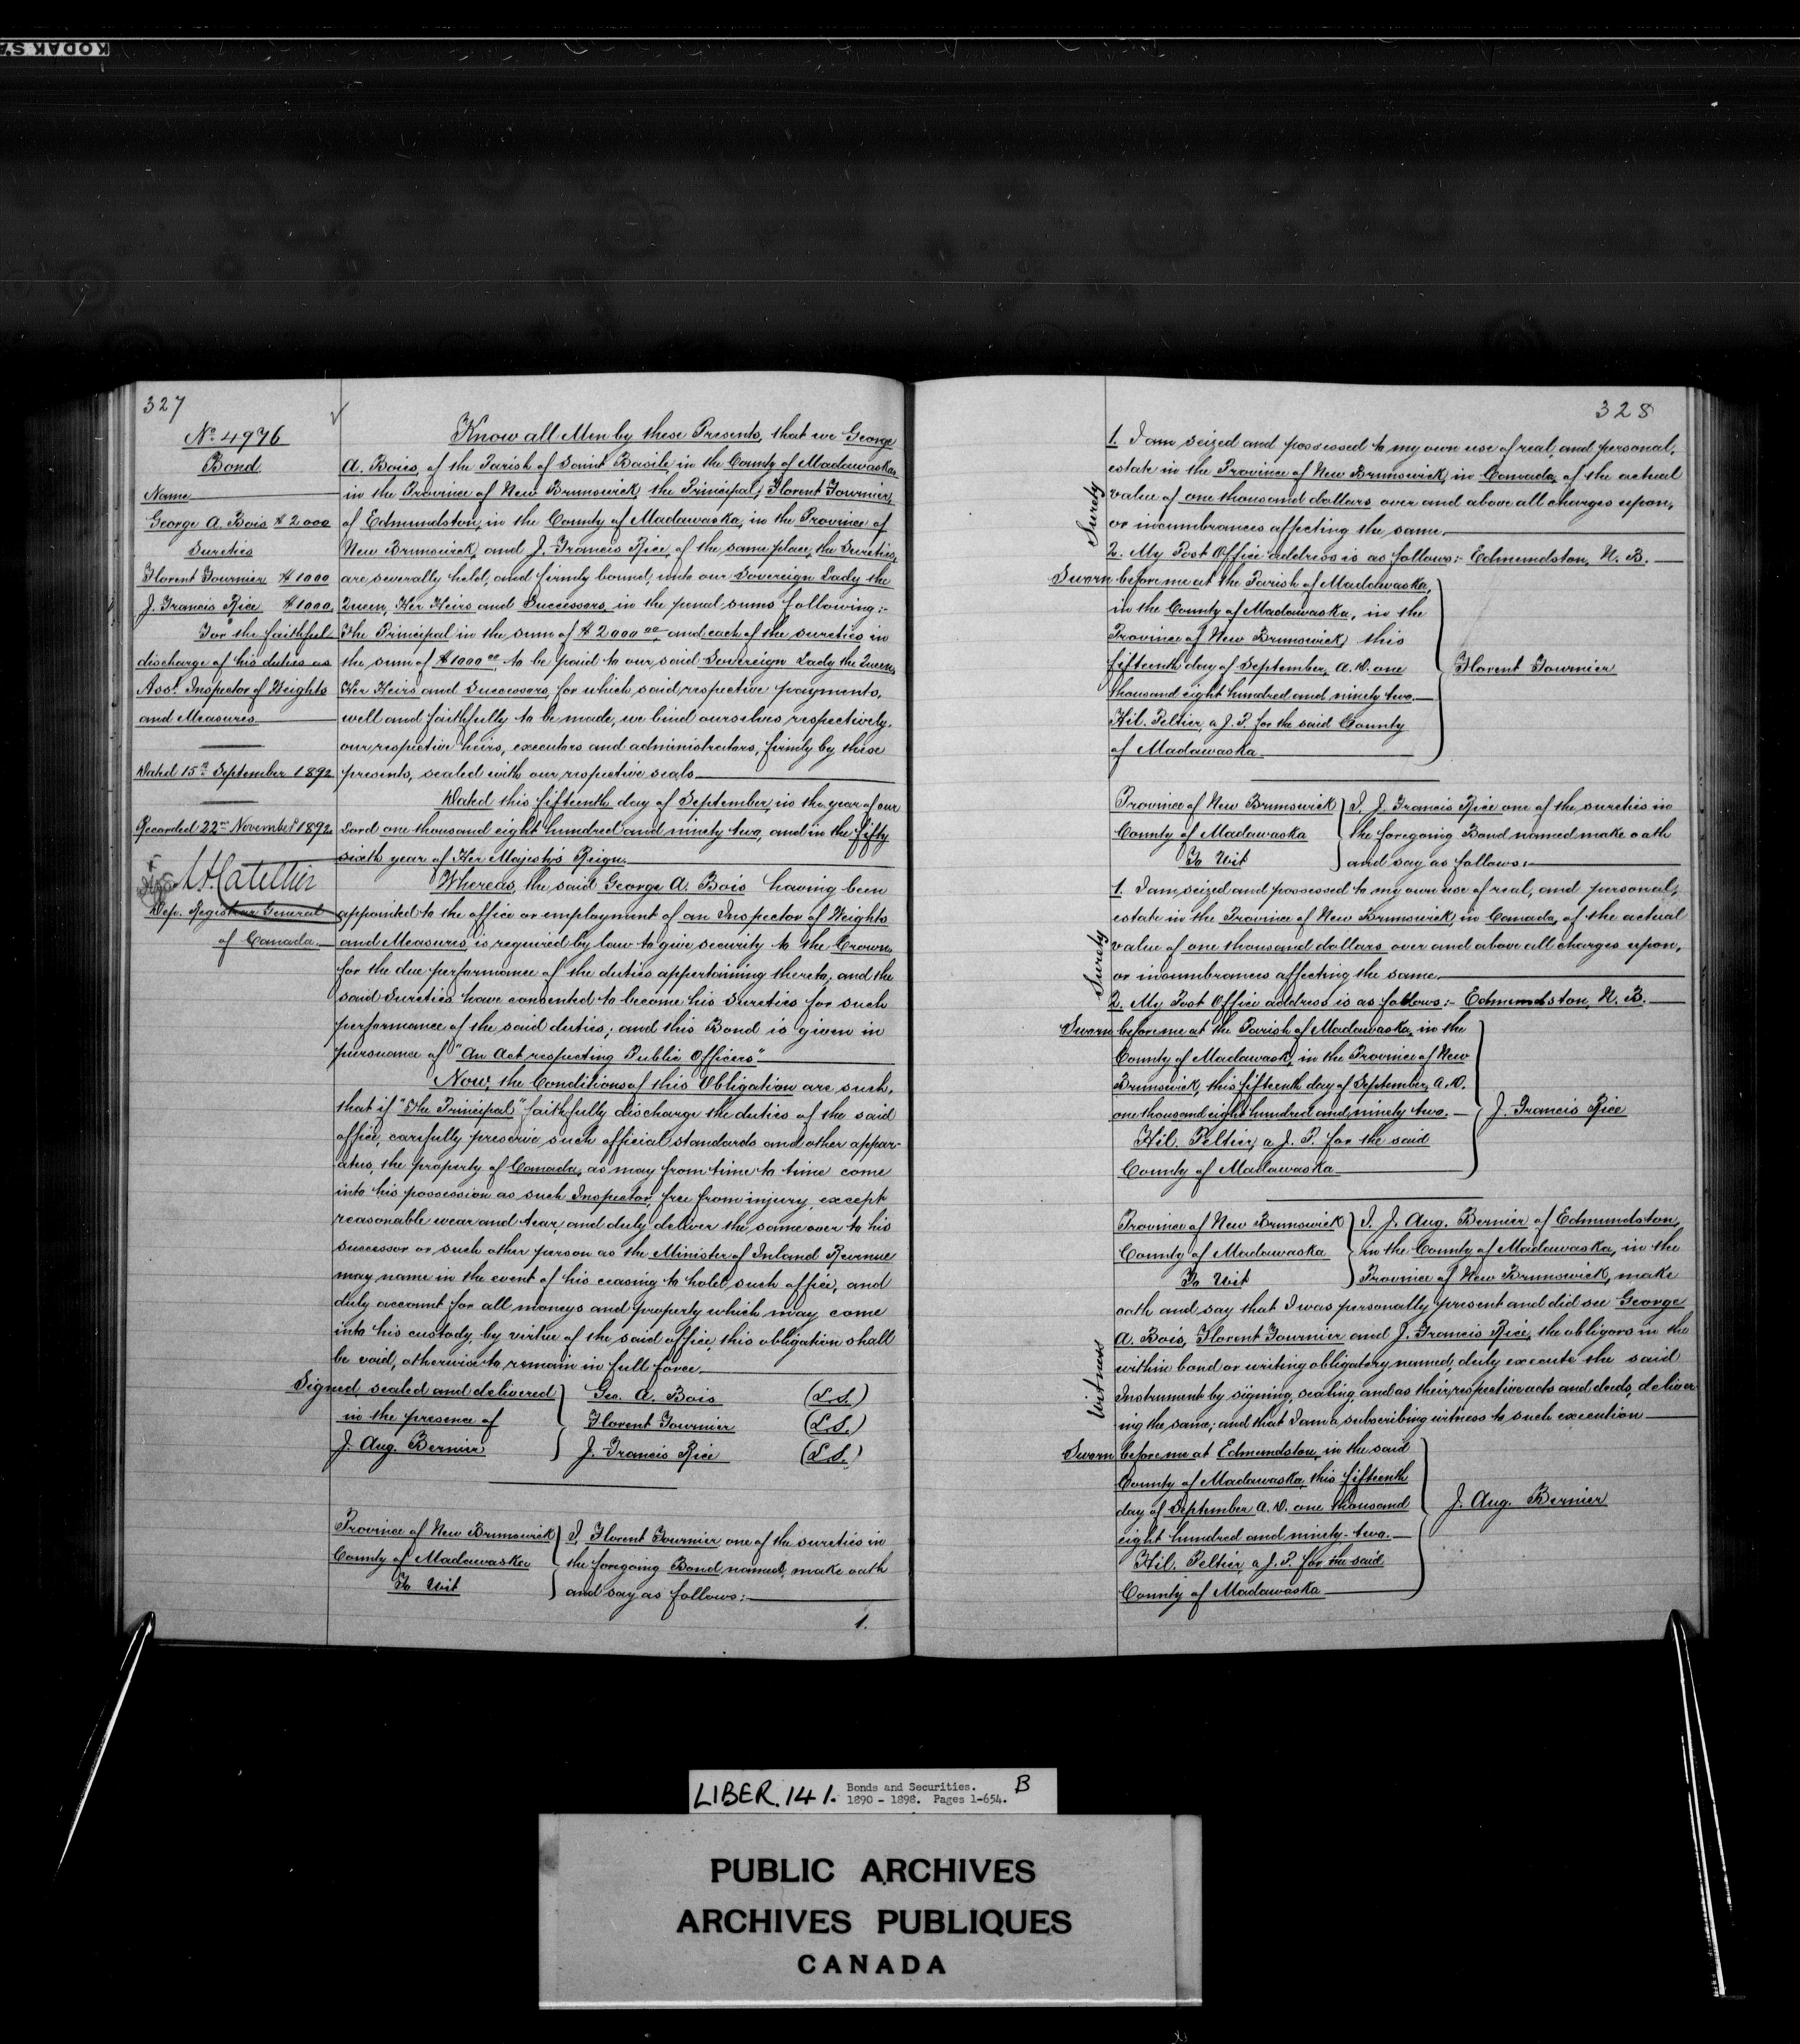 KODAK SA
327
No. 4976
Bond
Name
George A. Bois $2000
Sureties
Florent Fournier $1000
J. Francis Rice $1000
For the faithful
discharge of his duties as
Asst. Inspector of Weights
and Measures
Dated 15th September 1892
Recorded 22nd November 1892
Dep. Registrar General
of Canada.
Know all Men by these Presents, that we George
A. Bois, of the Parish of Saint Basile in the County of Madawaska
in the Province of New Brunswick, the Principal; Florent Fournier,
of Edmundston, in the County of Madawaska, in the Province of
New Brunswick, and J. Francis Rice, of the same place, the Sureties,
are severally held, and firmly bound, unto our Sovereign Lady the
Queen, Her Heirs and Successors, in the penal sums following:-
The Principal in the sum of $2000.00 and each of the sureties in
the sum of $1000.00 to be paid to our said Sovereign Lady the Queen,
Her Heirs and Successors, for which said respective payments,
well and faithfully to be made, we bind ourselves respectively,
our respective heirs, executors and administrators, firmly by these
presents, sealed with our respective seals
Dated this fifteenth day of September, in the year of our
Lord one thousand eight hundred and ninety two, and in the fifty
sixth year of Her Majesty's Reign.
Whereas, the said George A. Bois having been
appointed to the office or employment of an Inspector of Weights
and Measures, is required by law to give security to the Crown
for the due performance of the duties appertaining thereto; and the
said Sureties have consented to become his Sureties for such
performance of the said duties; and this Bond is given in
pursuance of "An Act respecting Public Officers"
Now, the Conditions of this Obligation are such,
that if "the Principal" faithfully discharge the duties of the said
office, carefully preserve such official standards and other appar-
atus, the property of Canada, as may from time to time come
into his possession as such Inspector, free from injury, except
reasonable wear and tear, and duly deliver the same over to his
successor or such other person as the Minister of Inland Revenue
may name in the event of his ceasing to hold such office, and
duly account for all moneys and property which may come
into his custody, by virtue of the said office, this obligation shall
be void, otherwise to remain in full force
Signed, sealed and delivered Geo. A. Bois (L.S.)
in the presence of Florent Fournier (L.S.)
J. Aug. Bernier J. Francis Rice (L.S.)
Province of New Brunswick I, Florent Fournier one of the sureties in
County of Madawaska the foregoing Bond named, make oath
To Wit and say as follows:
1.
328
Surety
1. I am seized and possessed to my own use of real, and personal,
estate in the Province of New Brunswick, in Canada, of the actual
value of one thousand dollars over and above all charges upon,
or incumbrances affecting the same.
2. My Post Office address is as follows:- Edmundston, N. B.
Sworn before me at the Parish of Madawaska,
in the County of Madawaska, in the
Province of New Brunswick, this
fifteenth day of September, A. D. one Florent Fournier
thousand eight hundred and ninety two.
Hil. Peltier, a J. P. for the said County
of Madawaska
Province of New Brunswick I, J. Francis Rice one of the sureties in
County of Madawaska the foregoing Bond named make oath
To Wit and say as follows:
Surety
1. I am seized and possessed to my own use of real, and personal,
estate in the Province of New Brunswick, in Canada, of the actual
value of one thousand dollars over and above all charges upon,
or incumbrances affecting the same.
2. My Post Office address is as follows:- Edmundston, N. B.
Sworn before me at the Parish of Madawaska, in the
County of Madawask, in the Province of New
Brunswick, this fifteenth day of September, A. D.
one thousand eight hundred and ninety two. J. Francis Rice
Hil. Peltier, a J. P. for the said
County of Madawaska
Province of New Brunswick I, J. Aug. Bernier of Edmundston,
County of Madawaska in the County of Madawaska, in the
To Wit Province of New Brunswick, make
Witness
oath and say that I was personally present and did see George
A. Bois, Florent Fournier and J. Francis Rice, the obligors in the
within bond or writing obligatory named, duly execute the said
Instrument by signing, sealing, and as their respective acts and deeds, deliver
ing the same; and that I am a subscribing witness to such execution
Sworn before me at Edmundston, in the said
County of Madawaska, this fifteenth
day of September A. D. one thousand J. Aug. Bernier
eight hundred and ninety-two.
Hil. Peltier, a J. P. for the said
County of Madawaska
LIBER. 141. Bonds and Securities. B
1890 - 1898. Pages 1-654.
PUBLIC ARCHIVES
ARCHIVES PUBLIQUES
CANADA